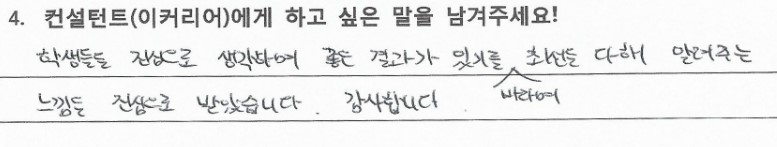 4. 컨설턴트(이커리어)에게 하고 싶은 말을 남겨주세요!
학생들을 진심으로 생각하여 좋은 결과가 있기를 바라며 최선을 다해 알려주는
느낌을 진심으로 받았습니다. 감사합니다.